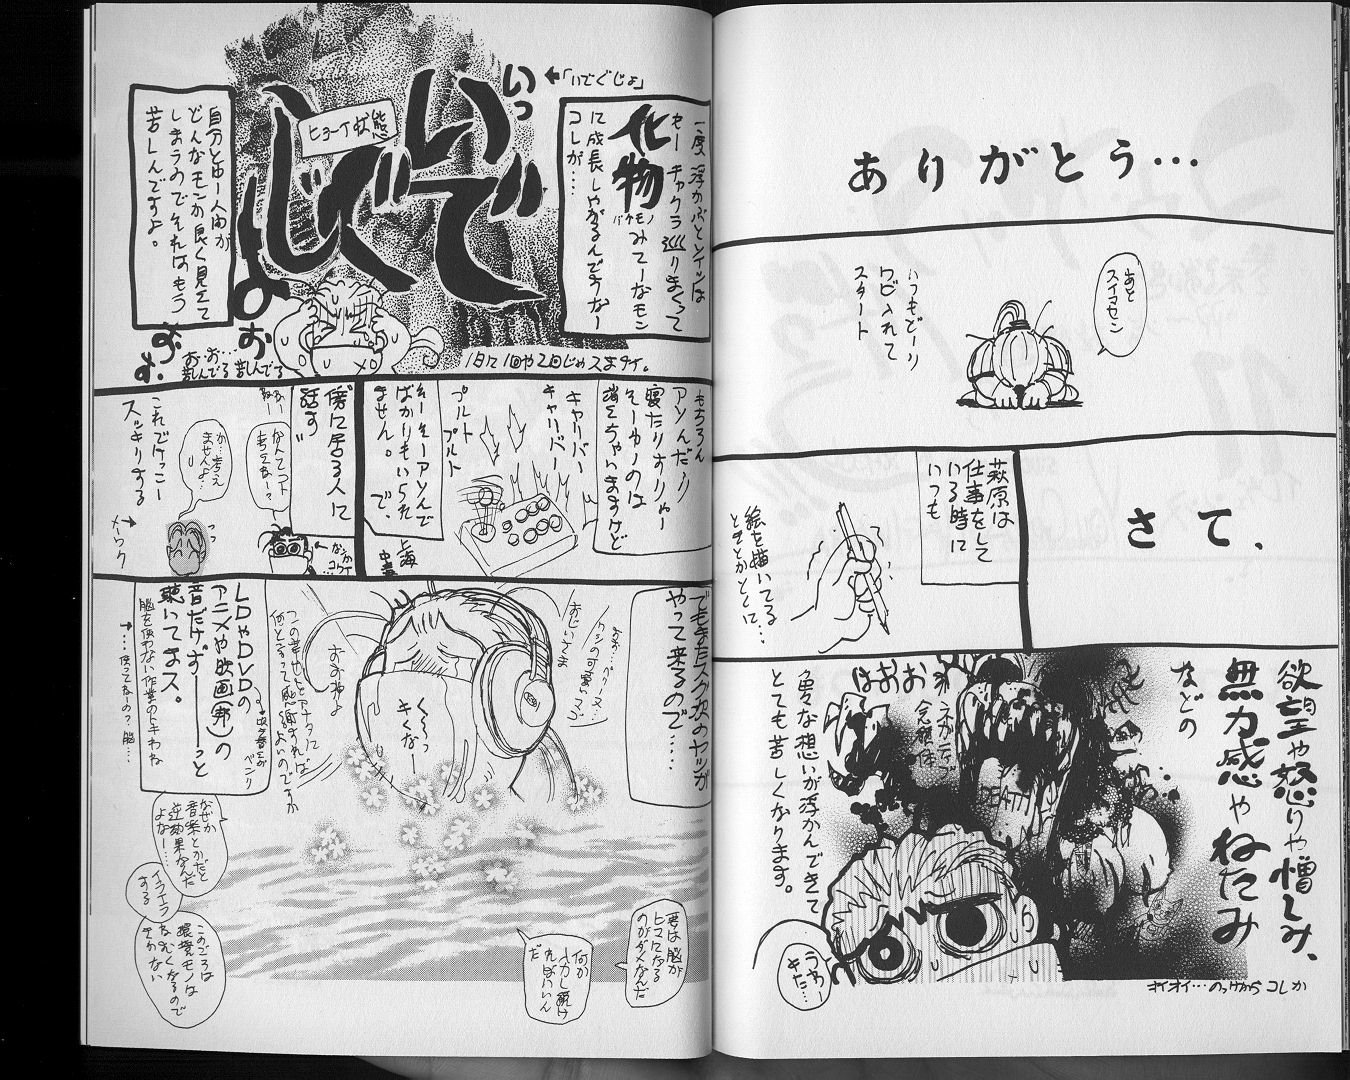 ありがとう…
あと
スイマセン
いつもどーり
ワビ入れて
スタート
さて、
萩原は
仕事をして
いる時に
いつも
絵を描いてる
ときとかとくに…
欲望や怒りや憎しみ、
無力感やねたみ
などの
ネガティブ
念願体
ほおお
色々な想いが浮かんできて
とても苦しくなります。
うわー
きた…
オイオイ…のっけからコレか
「いでぐじょ」
一度浮かぶとソイツは
もーチャクラ巡りまくって
化物
バケモノ
みてーなモン
に成長しやがるんですなー
コレが…
いっ
いで
ヒョーイ状態
自分とゆー人間が
どんなモンか良く見えて
しまうのでそれはもう
苦しんですよ。
お…お…
苦しんでる
苦しんでる
1日に1回や2回じゃスまナイ。
もちろん
アソんだり
寝たりすりゃー
そーゆーのは
消えちゃいますけど
キャリバー
キャリバー
プルト
プルト
そーそーアソんで
ばかりもいられ
ません。で、
傍に居る人に
話す
なんてコト
考えない？
か…考え
ませんよ…
これでけっこー
スッキリする
メーワク
でもまたスグ次のヤツが
やって来るので…
くーっ
きくなー
LDやDVDの
アニメや映画（邦）の
音だけずーーっと
聴いてまス。
脳を使わない作業のトキわな
…使ってなーの？脳…
なぜか
音楽とかだと
逆効果なんだ
よなー…
イライラ
する
このごろは
環境モノは
ねむくなるので
きかない
要は脳が
ヒマになる
のがダメなんだ
何か
入力し続け
ればいいん
だ